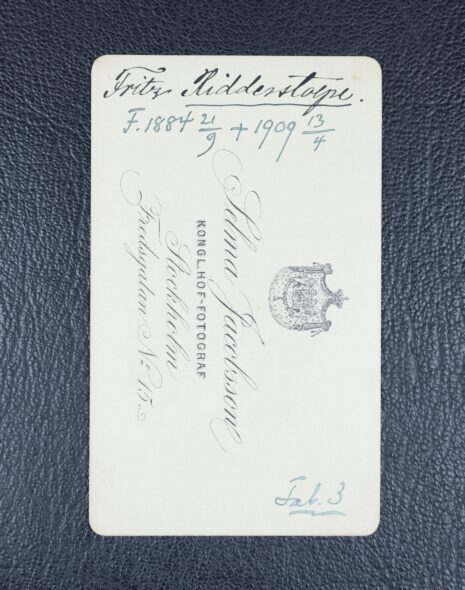 Fritz Ridderstolpe.
F. 1884 21/9 + 1909 13/4
Selma Jacobsson
KONGL. HOF-FOTOGRAF
Stockholm
Fredsgatan No 15.
Tab. 3